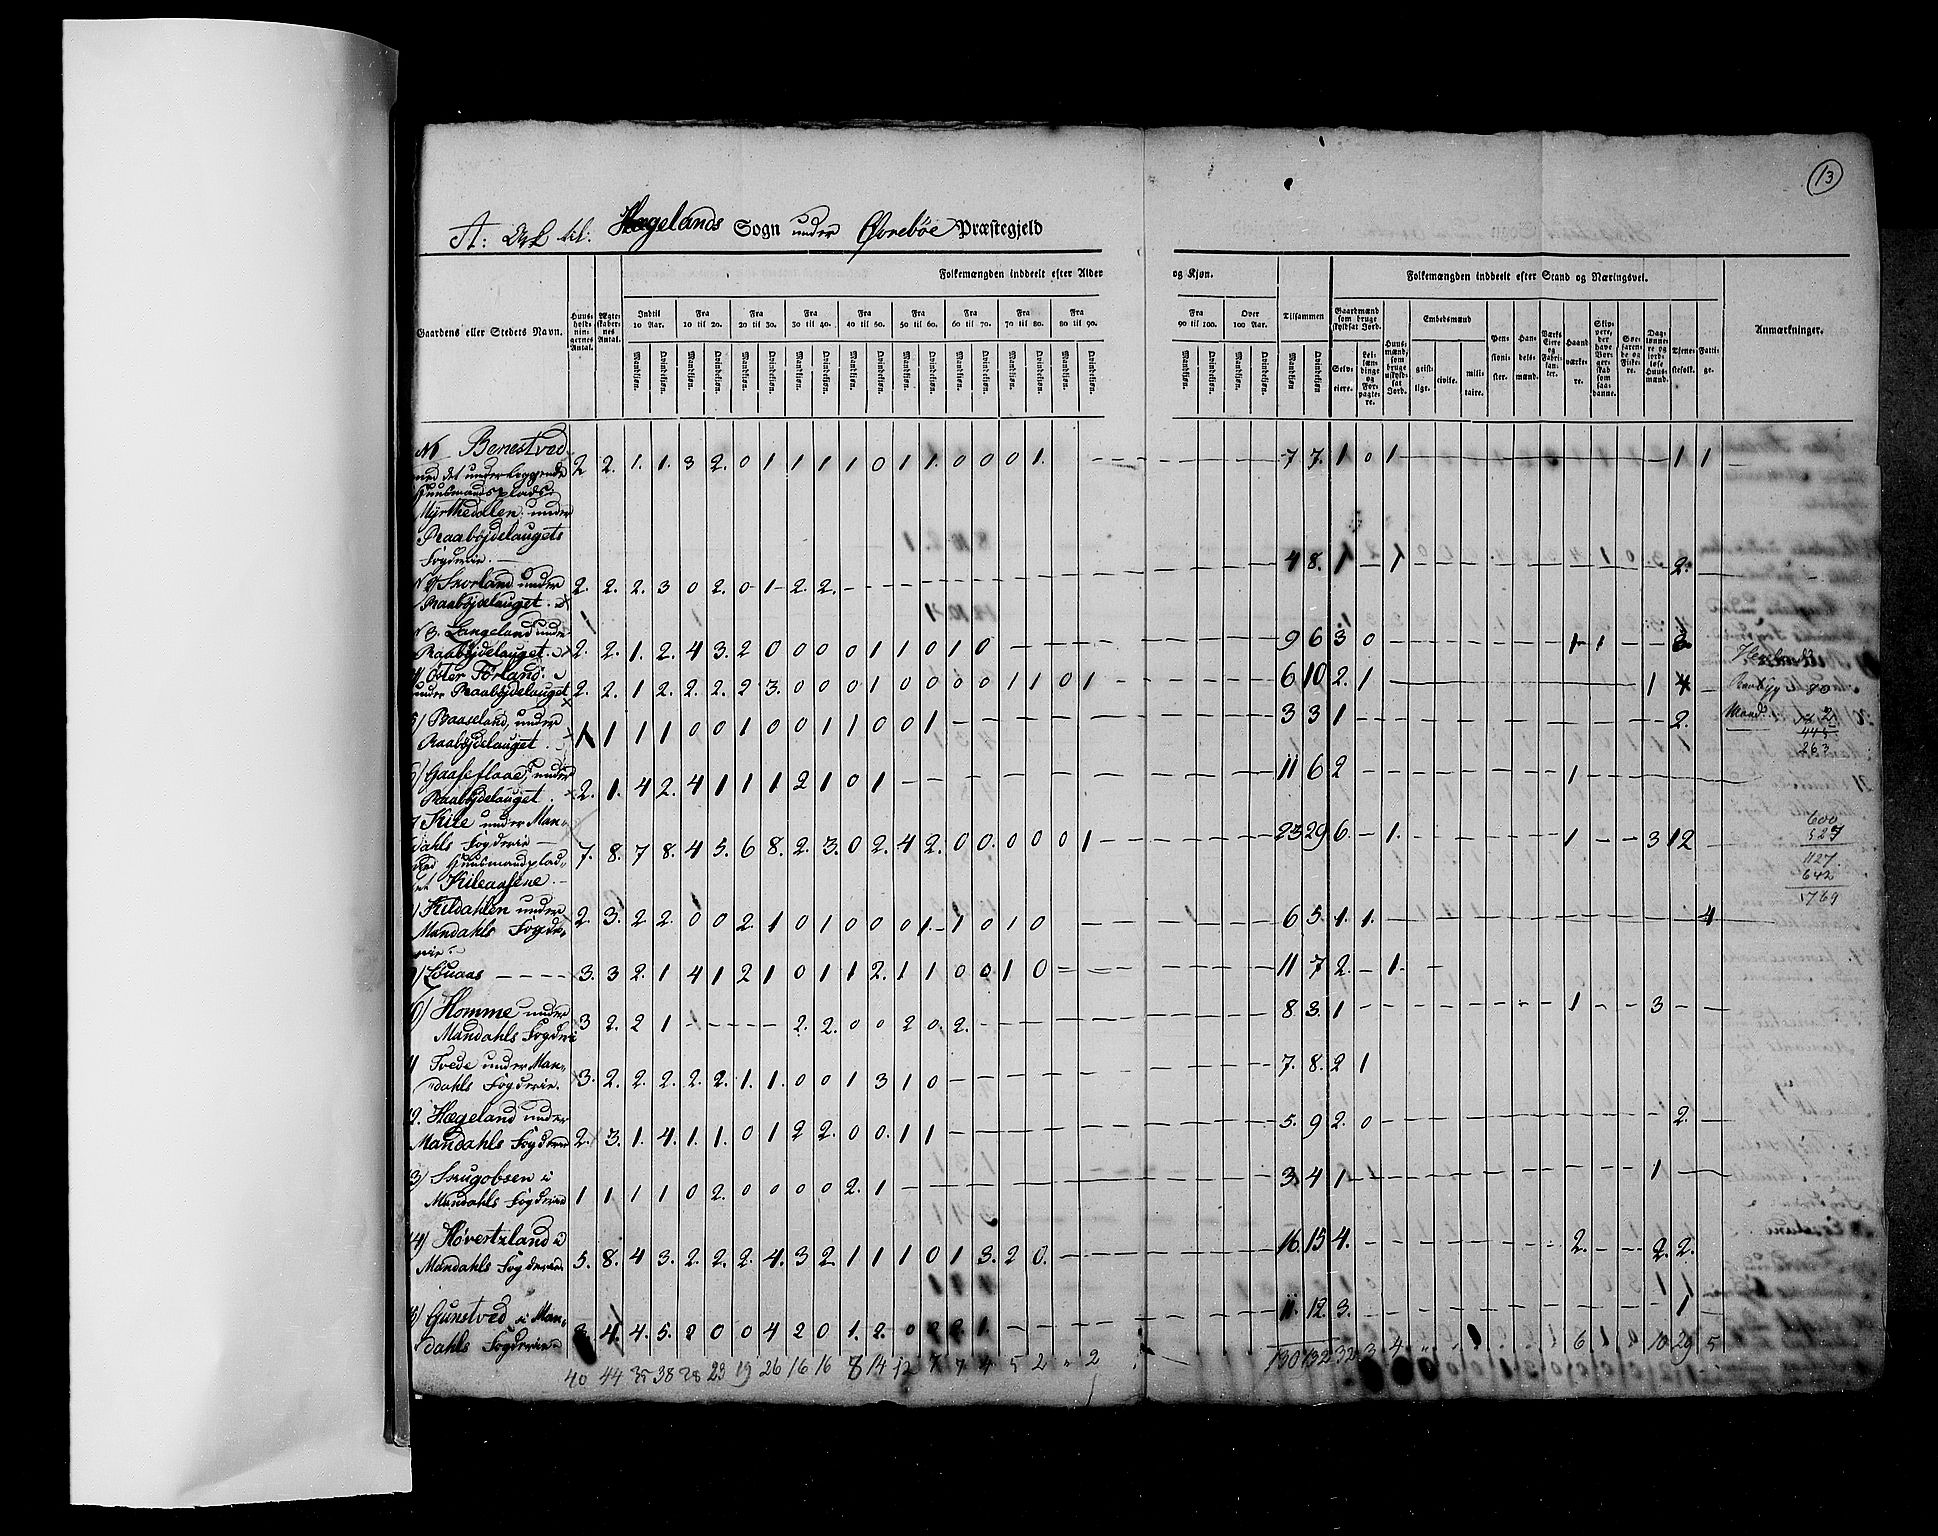 13
A: Hægelands Sogn under Øvrebøe Præstegjeld
Folkemængden inddeelt efter Alder og Kjøn. Folkemængden inddeelt efter Stand og Næringsvei.
Gaardens eller Stedets Navn. Huus-holdningernes Antal. Ægteskabernes Antal. Indtil 10 Aar. Fra 10 til 20. Fra 20 til 30. Fra 30 til 40. Fra 40 til 50. Fra 50 til 60. Fra 60 til 70. Fra 70 til 80. Fra 80 til 90. Fra 90 til 100. Over 100 Aar. Tilsammen Gaardmænd som bruge skyldsat Jord. Selveiere. Leilændinge og Forpagtere. Huusmænd, som bruge uskyldsat Jord. Embedsmænd geistlige. civile. militaire. Pensionister. Handelsmænd. Værks Eiere og Fabrikanter. Haandværkere. Skippere, der have Borgerskab som saadanne. Søefarende og Fiskere. Daglønnere og jordløse Huusmænd. Tjenestefolk. Fattige. Anmærkninger.
Mandkjøn. Qvindekjøn.
N1 Benestved 2 2. 1. 1. 3 2. 0 1 1 1 1 0 1 1. 0 0 0 1. 7 7. 1 0 1 1 1
med det underliggende
Huusmandsplads
Myrthedallen under
Raabøjdelaugets
Fogderie.
4 8. 1 1 2.
N 2 Skorland under 2. 2. 2. 3 0 2. 0 1 2. 2.
Raabøjdelauget
N 3. Langeland under
Raabøjdelauget 2. 2. 1. 2. 4 3. 2 0 0 0 0 1 1 0 1 0 9 6 3 0 1 1
4 Øster Førland
under Raabøjdelauget 2. 2. 1 2. 2. 2. 2 3. 0 0 0 1 0 0 0 0 1 1 0 1 6 10 2. 1 1 4 Raabyg 80
5) Baaseland, under 3 3 1 2. Mand.
Raabøjdelauget 1 1 1 1 0 0 1 0 0 1 1 0 0 1
263
6) Gaaseflaae, under 11 6 2 1
Raabøjdelauget 2. 1. 4 2. 4 1 1 1 2 1 0 1
7 Kile under Man- 600
dahls Fogderie 7. 8. 7 8. 4 5. 6 8. 2. 3. 0 2. 4 2. 0 0. 0 0 0 1 23 29 6. 1. 1 3 12 527
med Huusmandsplad- 1127
set Kileaasene. 642
1769
8) Kildahlen under 2. 3. 2 2. 0 0 2. 1 0 1 0 0 0 1 1 0 1 0 6 5. 1. 1. 4
Mandahls Fogde-
rie.
9) Løuaas 3. 3 2. 1 4 1 2 1 0 1 1 2. 1 1 0 0 1 0 11 7 2. 1.
10) Homme under 8 3. 1 1 3
Mandahls Fogderie 3 2. 2 1 2. 2. 0 0 2 0. 2.
11 Tvede under Man- 7. 8. 2 1
dahls Fogderie. 3. 2. 2. 2. 2. 2. 1. 1. 0 0 1 3 1 0
12. Hægeland under 5. 9 2. 0 2.
Mandahls Fogderie 2. 3. 1. 4. 1. 1. 0 1 2 2. 0 0. 1 1
13) Skugobsen i 3. 4 1 1
Mandahls Fogderie 1 1 1 1 0 2. 0 0 0 0 2. 1
14) Høverstzland i 16. 15 4. 2. 2. 2.
Mandahls Fogderie. 5. 8. 4 3. 2. 2. 2. 4. 3 2. 1 1 1 0 1 3. 2 0.
15) Gunstved i Man- 11. 12. 3. 1
dahls Fogderie 4. 4. 5. 2 0 0 4 2 0 1. 2. 0 2. 2. 1.
40 44 35 38 28 23 19 26 16 16 8 14 12 7 7 4 5 2 " 2 130 132 32 3 4 6. 1 0 10 29 5